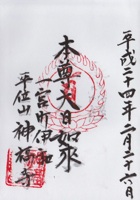 平成二十四年二月二十六日
本尊大日如来
一宮町伊和
平位山神福寺